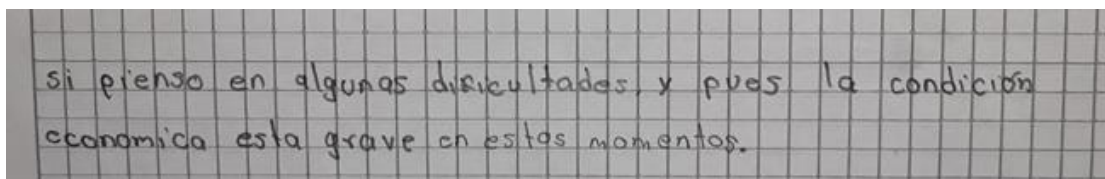 si pienso en algunas dificultades, y pues la condición
economica esta grave en estos momentos.